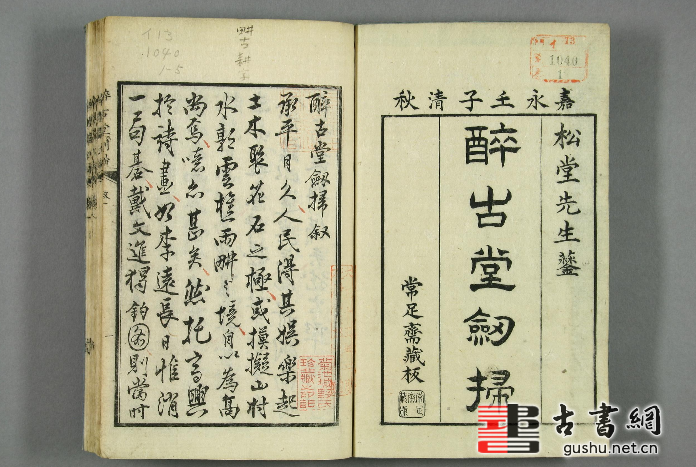 嘉永壬子清秋
松堂先生鑒
醉古堂劔掃
常足齋藏板
1040
1
醉古堂劔掃叙
承平日久人民得其娯樂起
土木聚花石之極或摸擬山村
水郭雲樵雨畊之境自以為高
尚焉噫亦甚矣然托高興
於詩畫如李遠長日惟消
一局棋戴文進獨釣
則當時
113
1040
1-5
古書網
gushu.net.cn